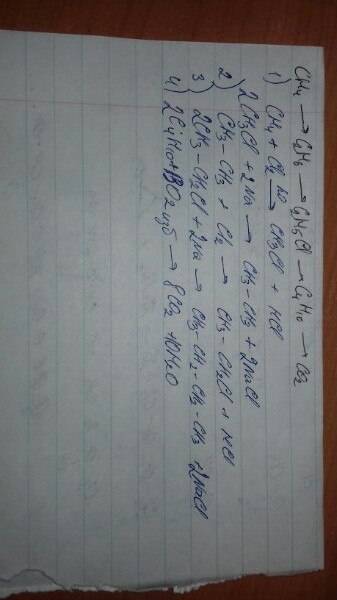 CH4 → C2H6 → C2H5Cl → C4H10 → CO2
1) CH4 + Cl2 hν→ CH3Cl + HCl
2CH3Cl + 2Na → CH3-CH3 + 2NaCl
2) CH3-CH3 + Cl2 → CH3-CH2Cl + HCl
3) 2CH3-CH2Cl + 2Na → CH3-CH2-CH2-CH3 + 2NaCl
4) 2C4H10 + 13O2 изб → 8CO2 + 10H2O